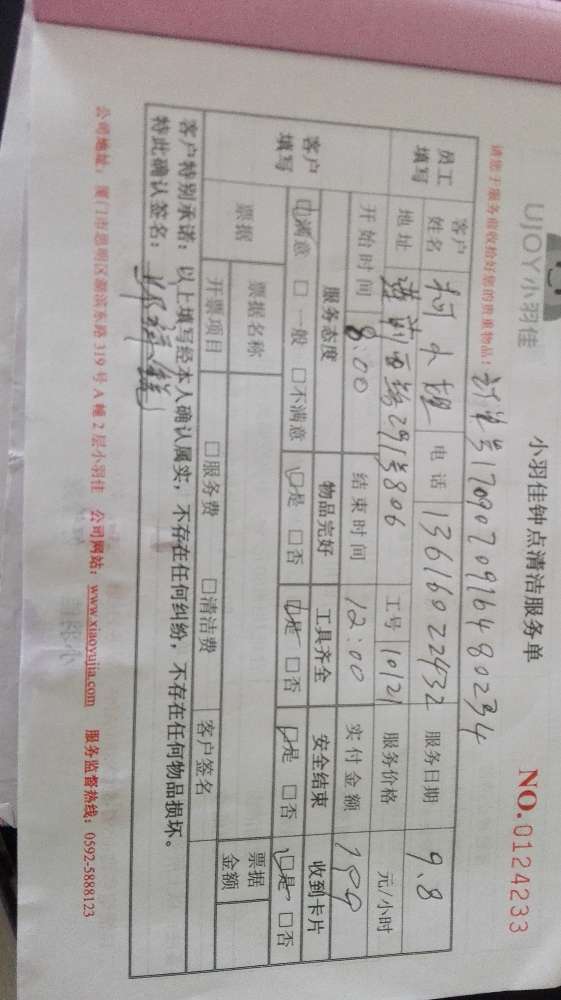 UJOY小羽佳
小羽佳钟点清洁服务单
NO.0124233
请您于服务前收拾好您的贵重物品!
订单号1709070916480234
员工填写
客户姓名 柯小姐 电话 13616022432 服务日期 9.8
地址 莲前西路291号806 工号 10121 服务价格 元/小时
开始时间 8:00 结束时间 12:00 实付金额 199
客户填写
服务态度 物品完好 工具齐全 安全结束 收到卡片
☑满意 □一般 □不满意 ☑是 □否 ☑是 □否 ☑是 □否 ☑是 □否
票据 票据名称 票据金额
开票项目 □服务费 □清洁费 客户签名
客户特别承诺:以上填写经本人确认属实,不存在任何纠纷,不存在任何物品损坏。
特此确认签名:
公司地址:厦门市思明区湖滨东路319号A幢2层小羽佳 公司网站:www.xiaoyujia.com 服务监督热线:0592-5888123